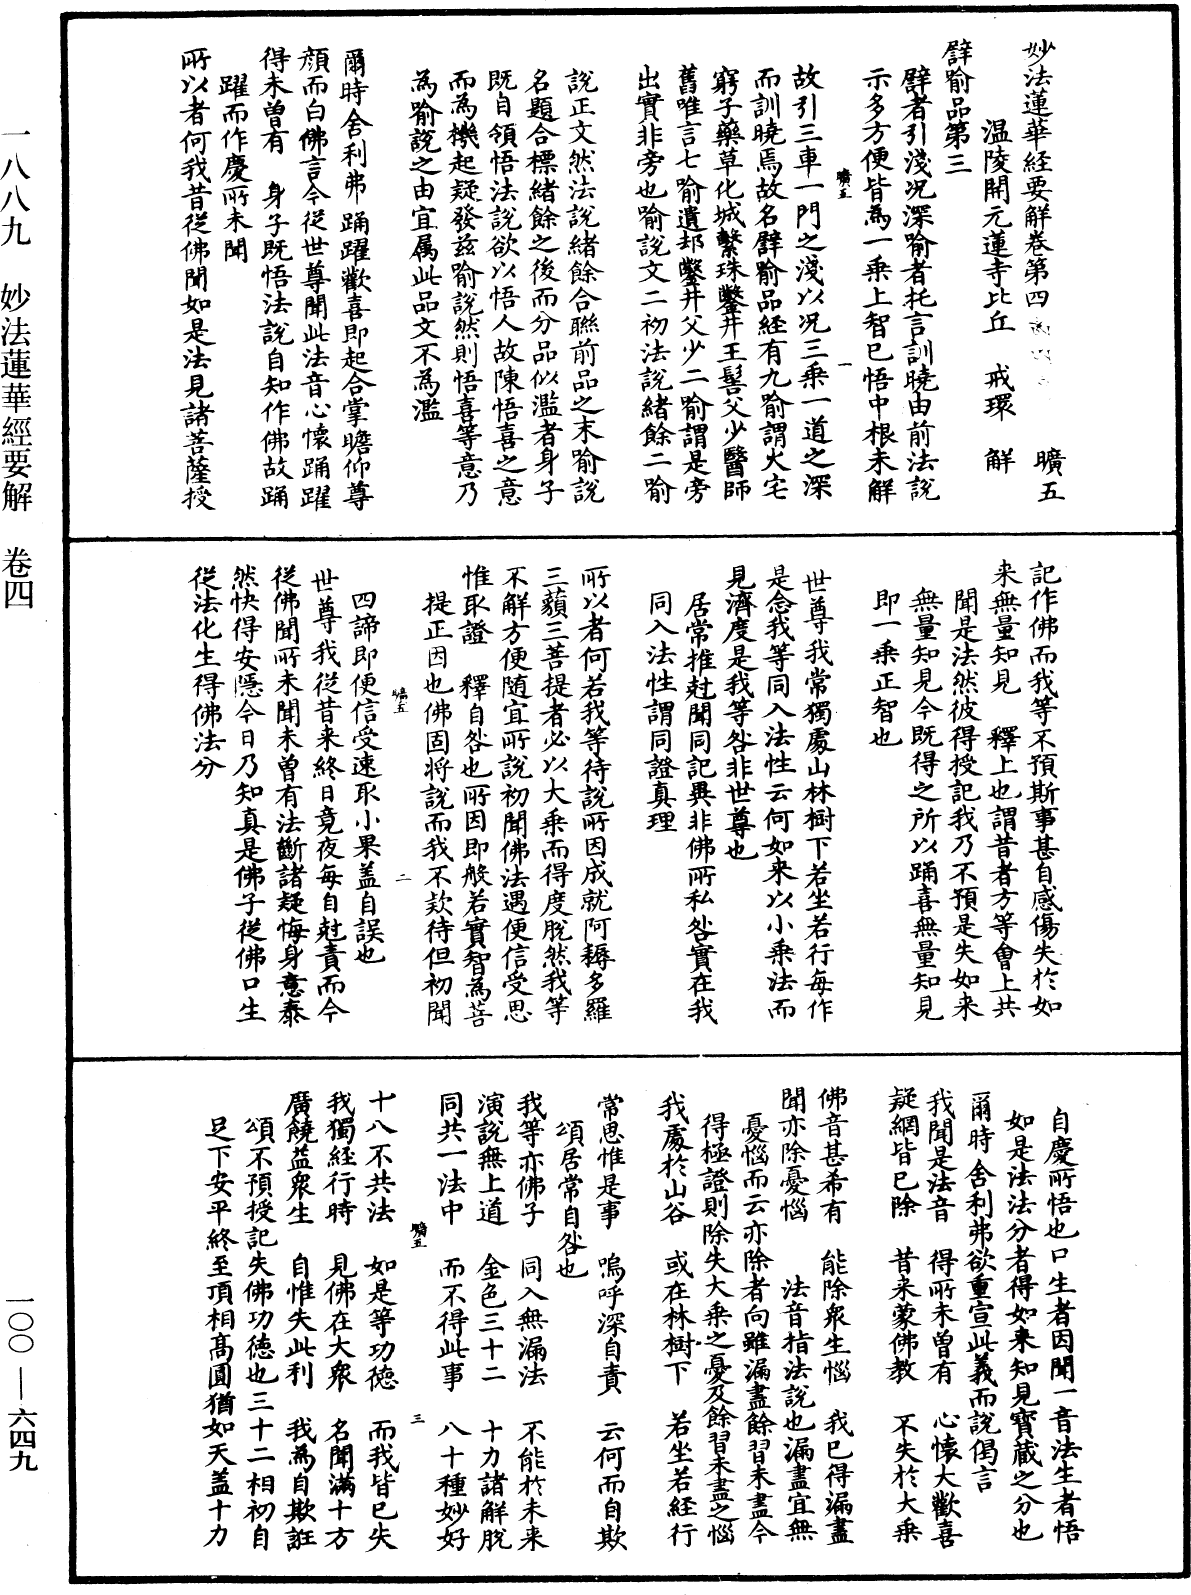 妙法蓮華経要解卷第四　曠五
温陵開元蓮寺比丘　戒環　解
譬喻品第三
譬者引淺况深喻者托言訓曉由前法說
示多方便皆為一乗上智已悟中根未解
曠五　一
故引三車一門之淺以况三乗一道之深
而訓曉焉故名譬喻品経有九喻謂火宅
窮子藥草化城繫珠鑿井王髻父少醫師
舊唯言七喻遺却鑿井父少二喻謂是旁
出實非旁也喻說文二初法說緒餘二喻
說正文然法說緒餘合聯前品之末喻說
名題合標緒餘之後而分品似濫者身子
既自領悟法說欲以悟人故陳悟喜之意
而為機起疑發兹喻說然則悟喜等意乃
為喻說之由宜属此品文不為濫
爾時舍利弗踊躍歡喜即起合掌瞻仰尊
顔而白佛言今從世尊聞此法音心懷踊躍
得未曽有　身子既悟法說自知作佛故踊
躍而作慶所未聞
所以者何我昔從佛聞如是法見諸菩薩授
記作佛而我等不預斯事甚自感傷失於如
来無量知見　釋上也謂昔者方等會上共
聞是法然彼得授記我乃不預是失如来
無量知見今既得之所以踊喜無量知見
即一乗正智也
世尊我常獨處山林樹下若坐若行每作
是念我等同入法性云何如来以小乗法而
見濟度是我等咎非世尊也
居常推尅聞同記異非佛所私咎實在我
同入法性謂同證真理
所以者何若我等待說所因成就阿耨多羅
三藐三菩提者必以大乗而得度脫然我等
不解方便随宜所說初聞佛法遇便信受思
惟取證　釋自咎也所因即般若實智為菩
提正因也佛固將說而我不欵待但初聞
曠五　二
四諦即便信受速取小果盖自誤也
世尊我從昔来終日竟夜每自尅責而今
從佛聞所未聞未曽有法斷諸疑悔身意泰
然快得安隱今日乃知真是佛子從佛口生
從法化生得佛法分
自慶所悟也口生者因聞一音法生者悟
如是法法分者得如来知見寶蔵之分也
爾時舍利弗欲重宣此義而說偈言
我聞是法音　得所未曽有　心懷大歡喜
疑網皆已除　昔来蒙佛教　不失於大乗
佛音甚希有　能除衆生惱　我已得漏盡
聞亦除憂惱　法音指法說也漏盡宜無
憂惱而云亦除者向雖漏盡餘習未盡今
得極證則除失大乗之憂及餘習未盡之惱
我處於山谷　或在林樹下　若坐若経行
常思惟是事　嗚呼深自責　云何而自欺
頌居常自咎也
我等亦佛子　同入無漏法　不能於未来
演說無上道　金色三十二　十力諸解脫
同共一法中　而不得此事　八十種妙好
曠五　三
十八不共法　如是等功德　而我皆已失
我獨経行時　見佛在大衆　名聞滿十方
廣饒益衆生　自惟失此利　我為自欺誑
頌不預授記失佛功德也三十二相初自
足下安平終至頂相髙圓猶如天盖十力
一八八九　妙法蓮華經要解　卷四
一〇〇—六四九